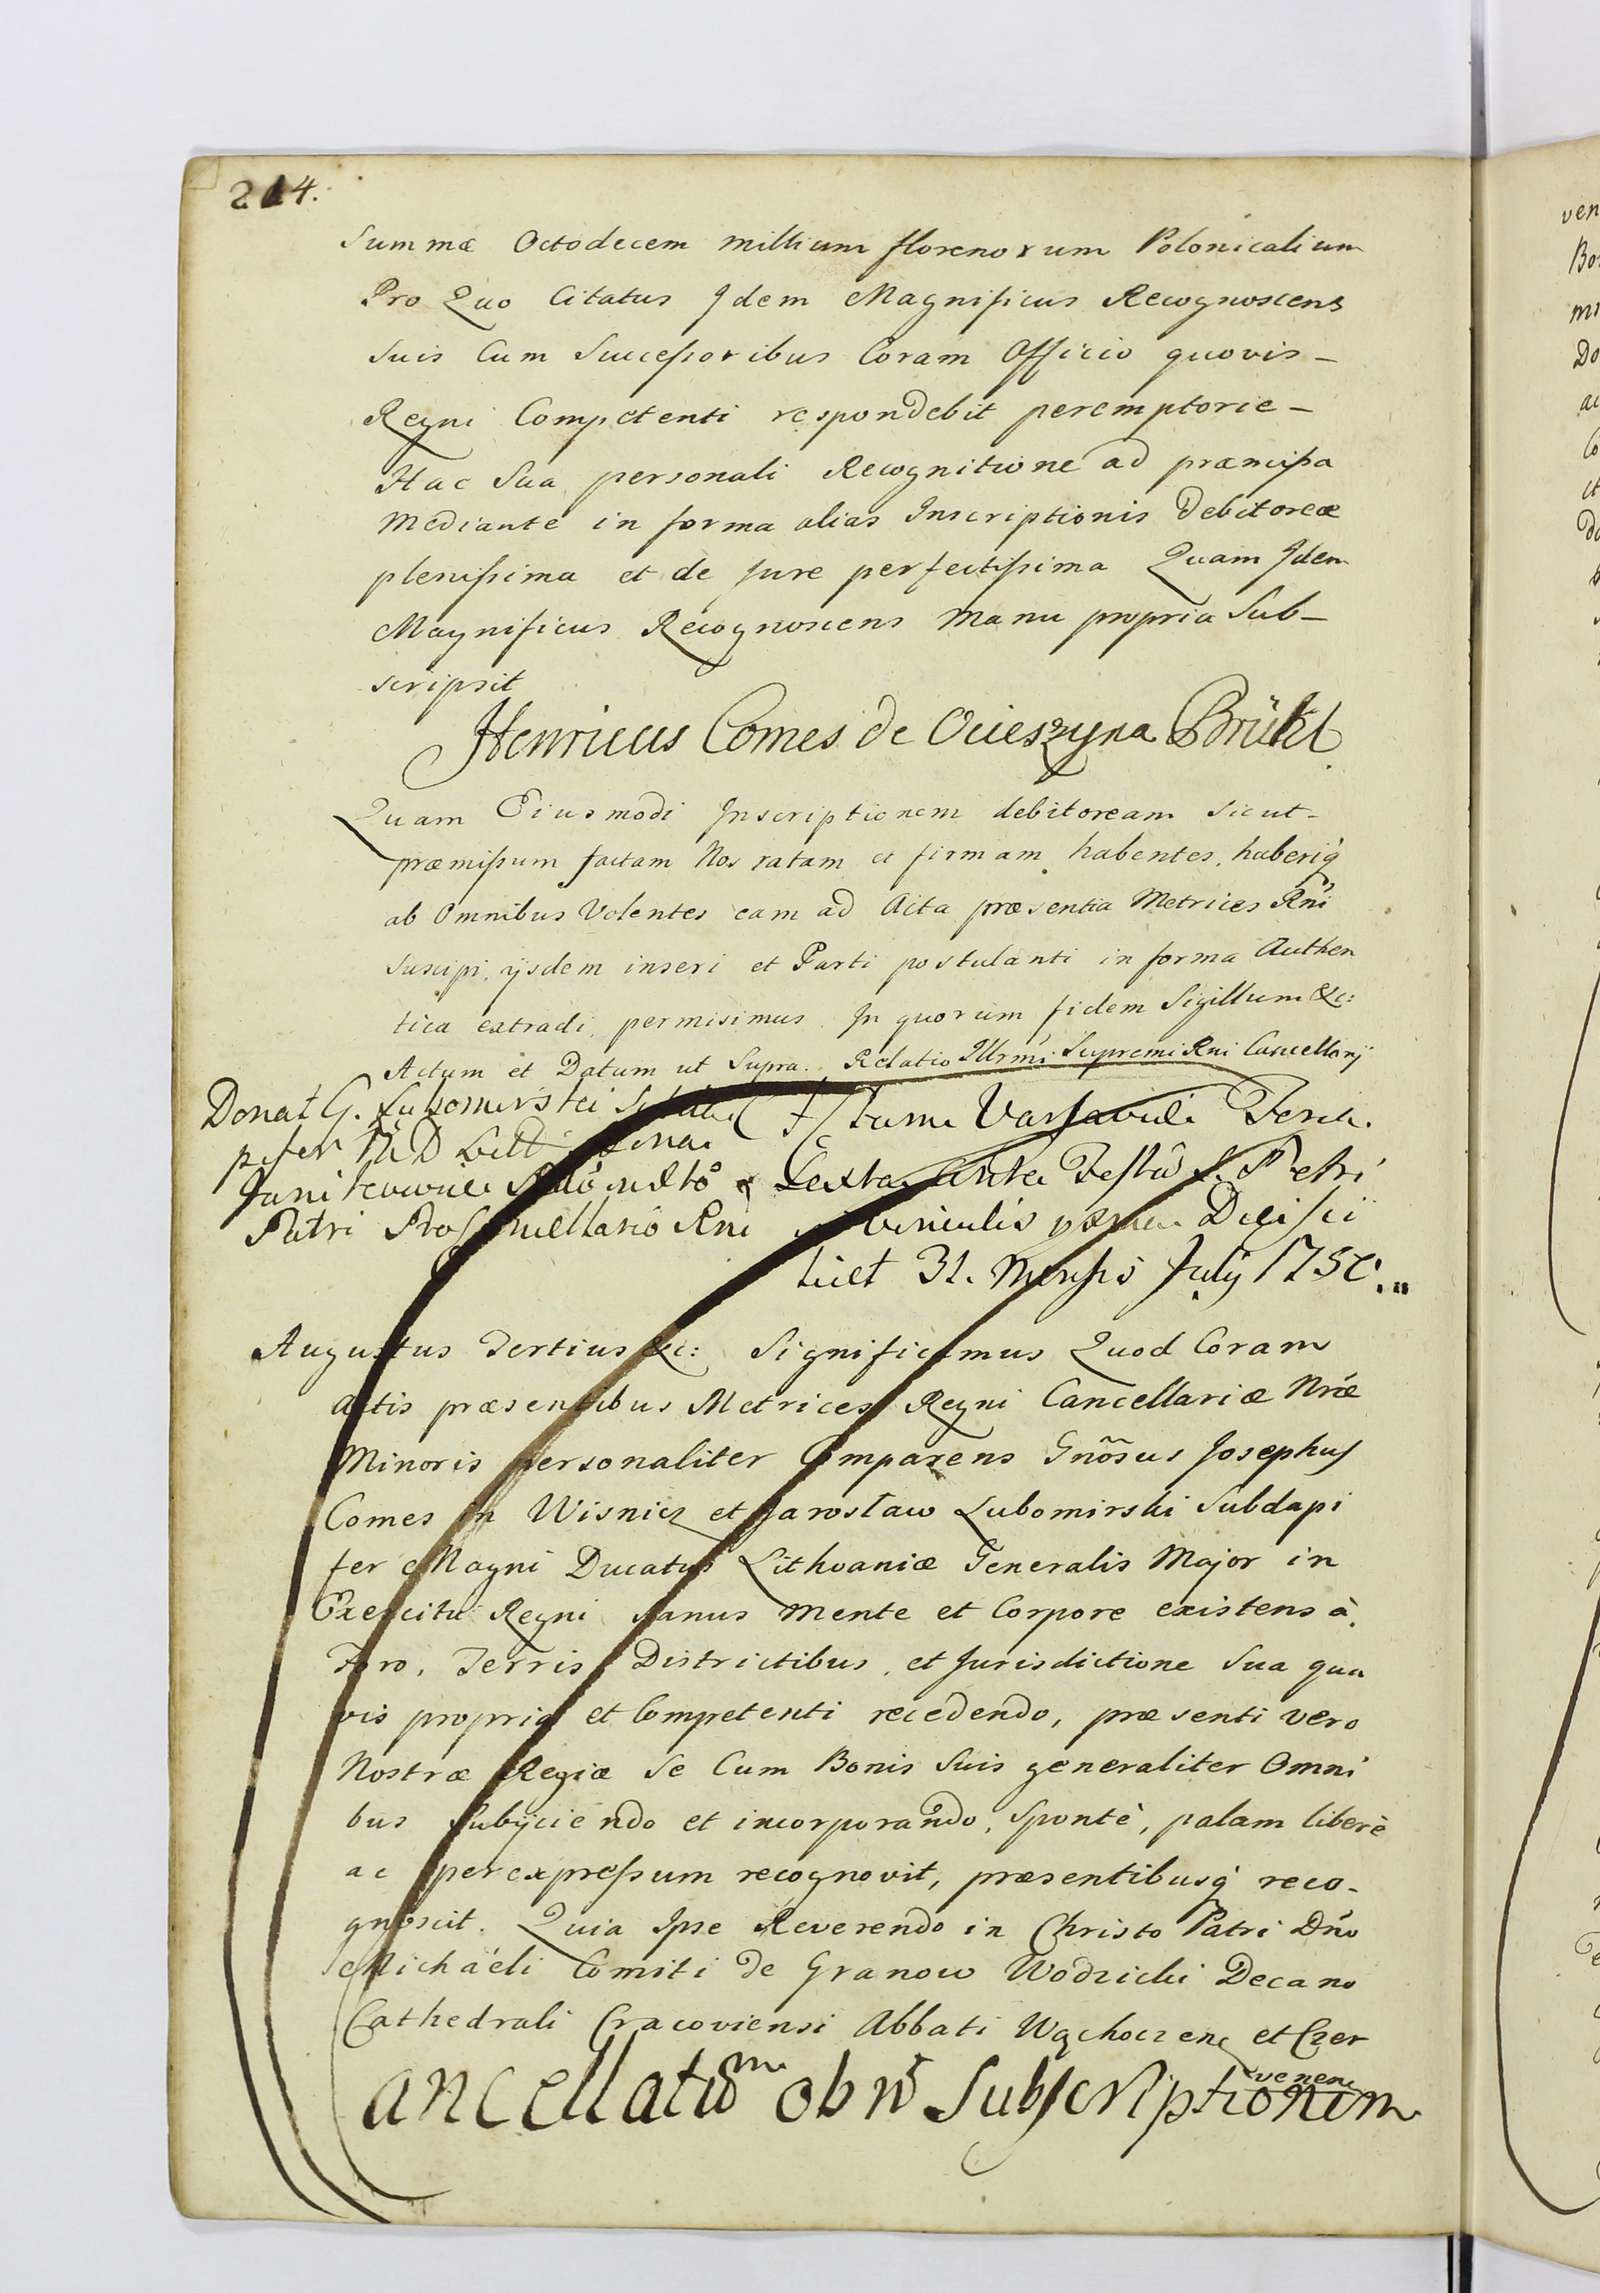 214.
Summæ Octodecem millium florenorum Polonicalium
Pro Quo Citatus Idem Magnificus Recognoscens
Suis Cum Successoribus Coram Officio quovis –
Regni Competenti respondebit peremptorie –
Hac Sua personali Recognitione ad præmissa
Mediante in forma alias Inscriptionis Debitoreæ
plenissima et de Jure perfectissima Quam Idem
Magnificus Recognoscens Manu propria Sub–
scripsit
Henricus Comes de Ocieszyna Brühl
Quam Eiusmodi Inscriptionem debitoream sicut–
præmissum factam Nos ratam et firmam habentes, haberiq̃
ab Omnibus Volentes eam ad Acta præsentia Metrices Rñi
Suscipi, ijsdem inseri et Parti postulanti in forma Authen
tica extradi permisimus. In quorum fidem Sigillum &c:
Actum et Datum ut Supra. Relatio Illrmi Supremi Rni Cancellarij
Donat G. Lubomirski
Actum Varsaviæ Feria
Sexta Ante Festũ S. Petri
Patri Rni
vinculis
31. Mensis July
Augustus Tertius &c: Significamus Quod Coram
Actis præsentibus Metrices Regni Cancellariæ Nræ
Minoris personaliter Comparens Gnõsus Josephus
Comes in Wisnicz et Jarosław Lubomirski Subdapi
fer Magni Ducatus Lithvaniæ Generalis Major in
Exercitu Regni sanus Mente et Corpore existens à
Foro, Terris, Districtibus, et Jurisdictione Sua qua
vis propria et Competenti recedendo, præsenti vero
Nostræ Regiæ Se Cum Bonis Suis generaliter Omni
bus Subijciendo et incorporando, Spontè, palam liberè
ac per expressum recognovit, præsentibusq̃ reco–
gnoscit. Quia Ipse Reverendo in Christo Patri Dño
Michaéli Comiti de Granow Wodzicki Decano
Cathedrali Cracoviensi Abbati Wąchoczen et Czer
venen
ancellatũm ob nō Subscriptionem